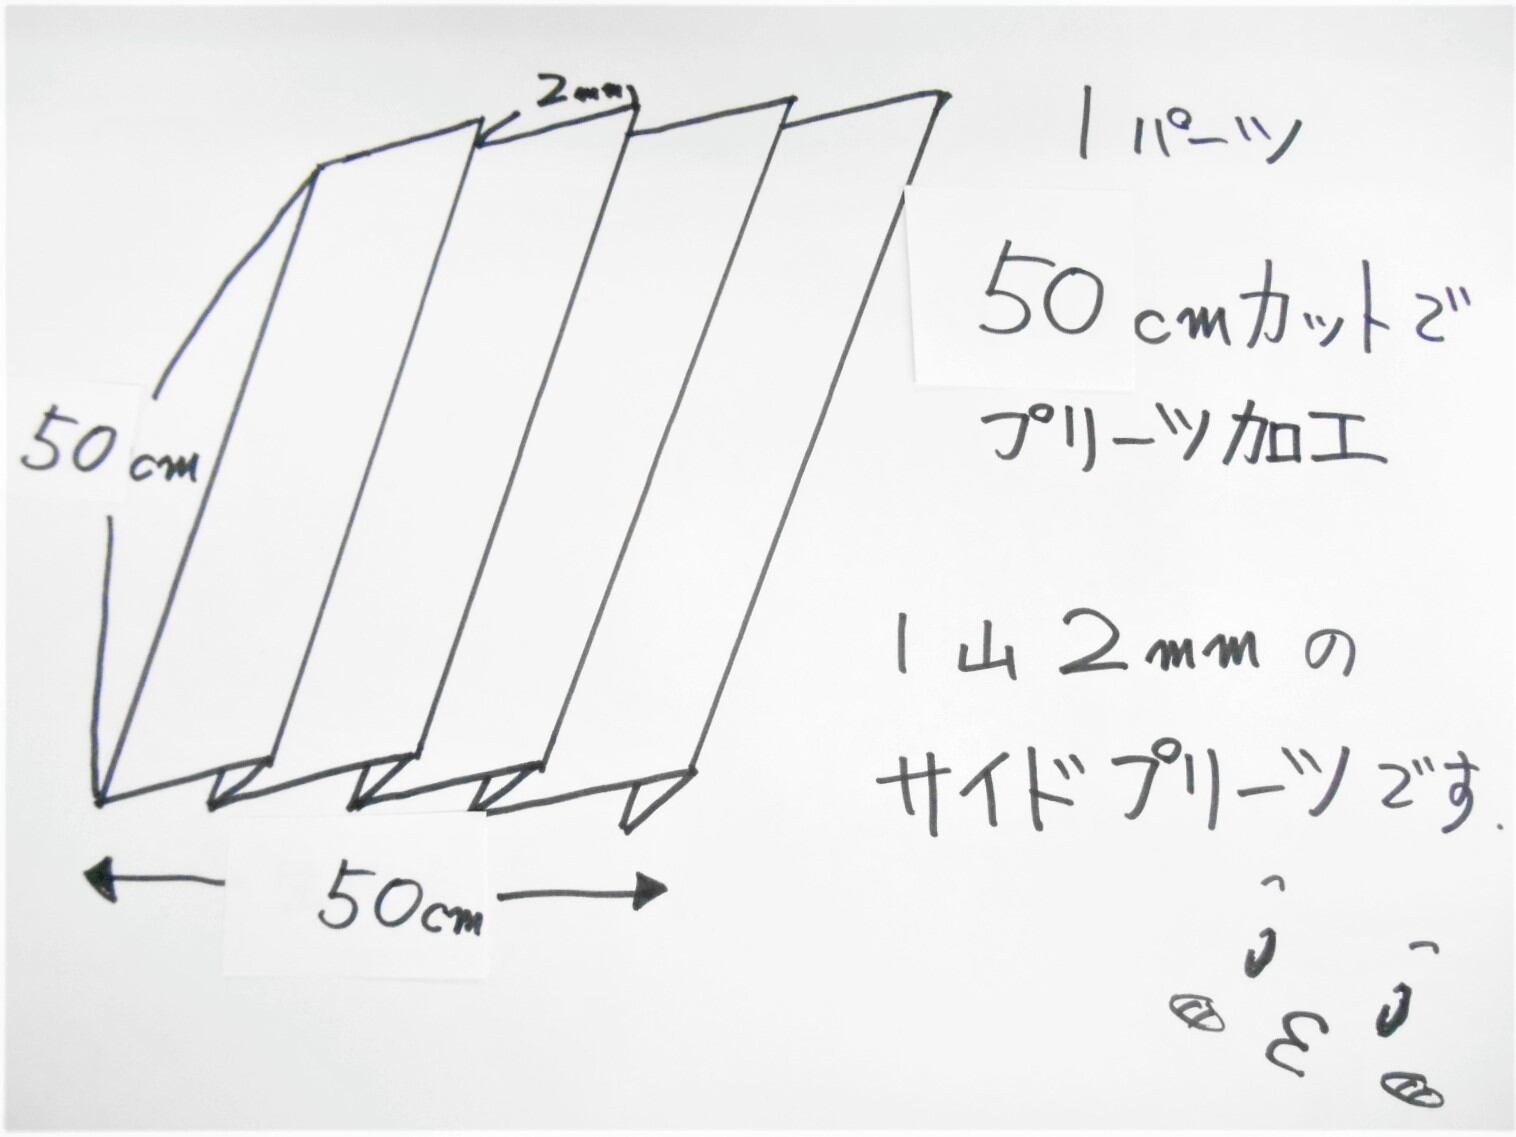 2mm
1パーツ
50cmカットで
プリーツ加工
50cm
1山2mmの
サイドプリーツです.
50cm